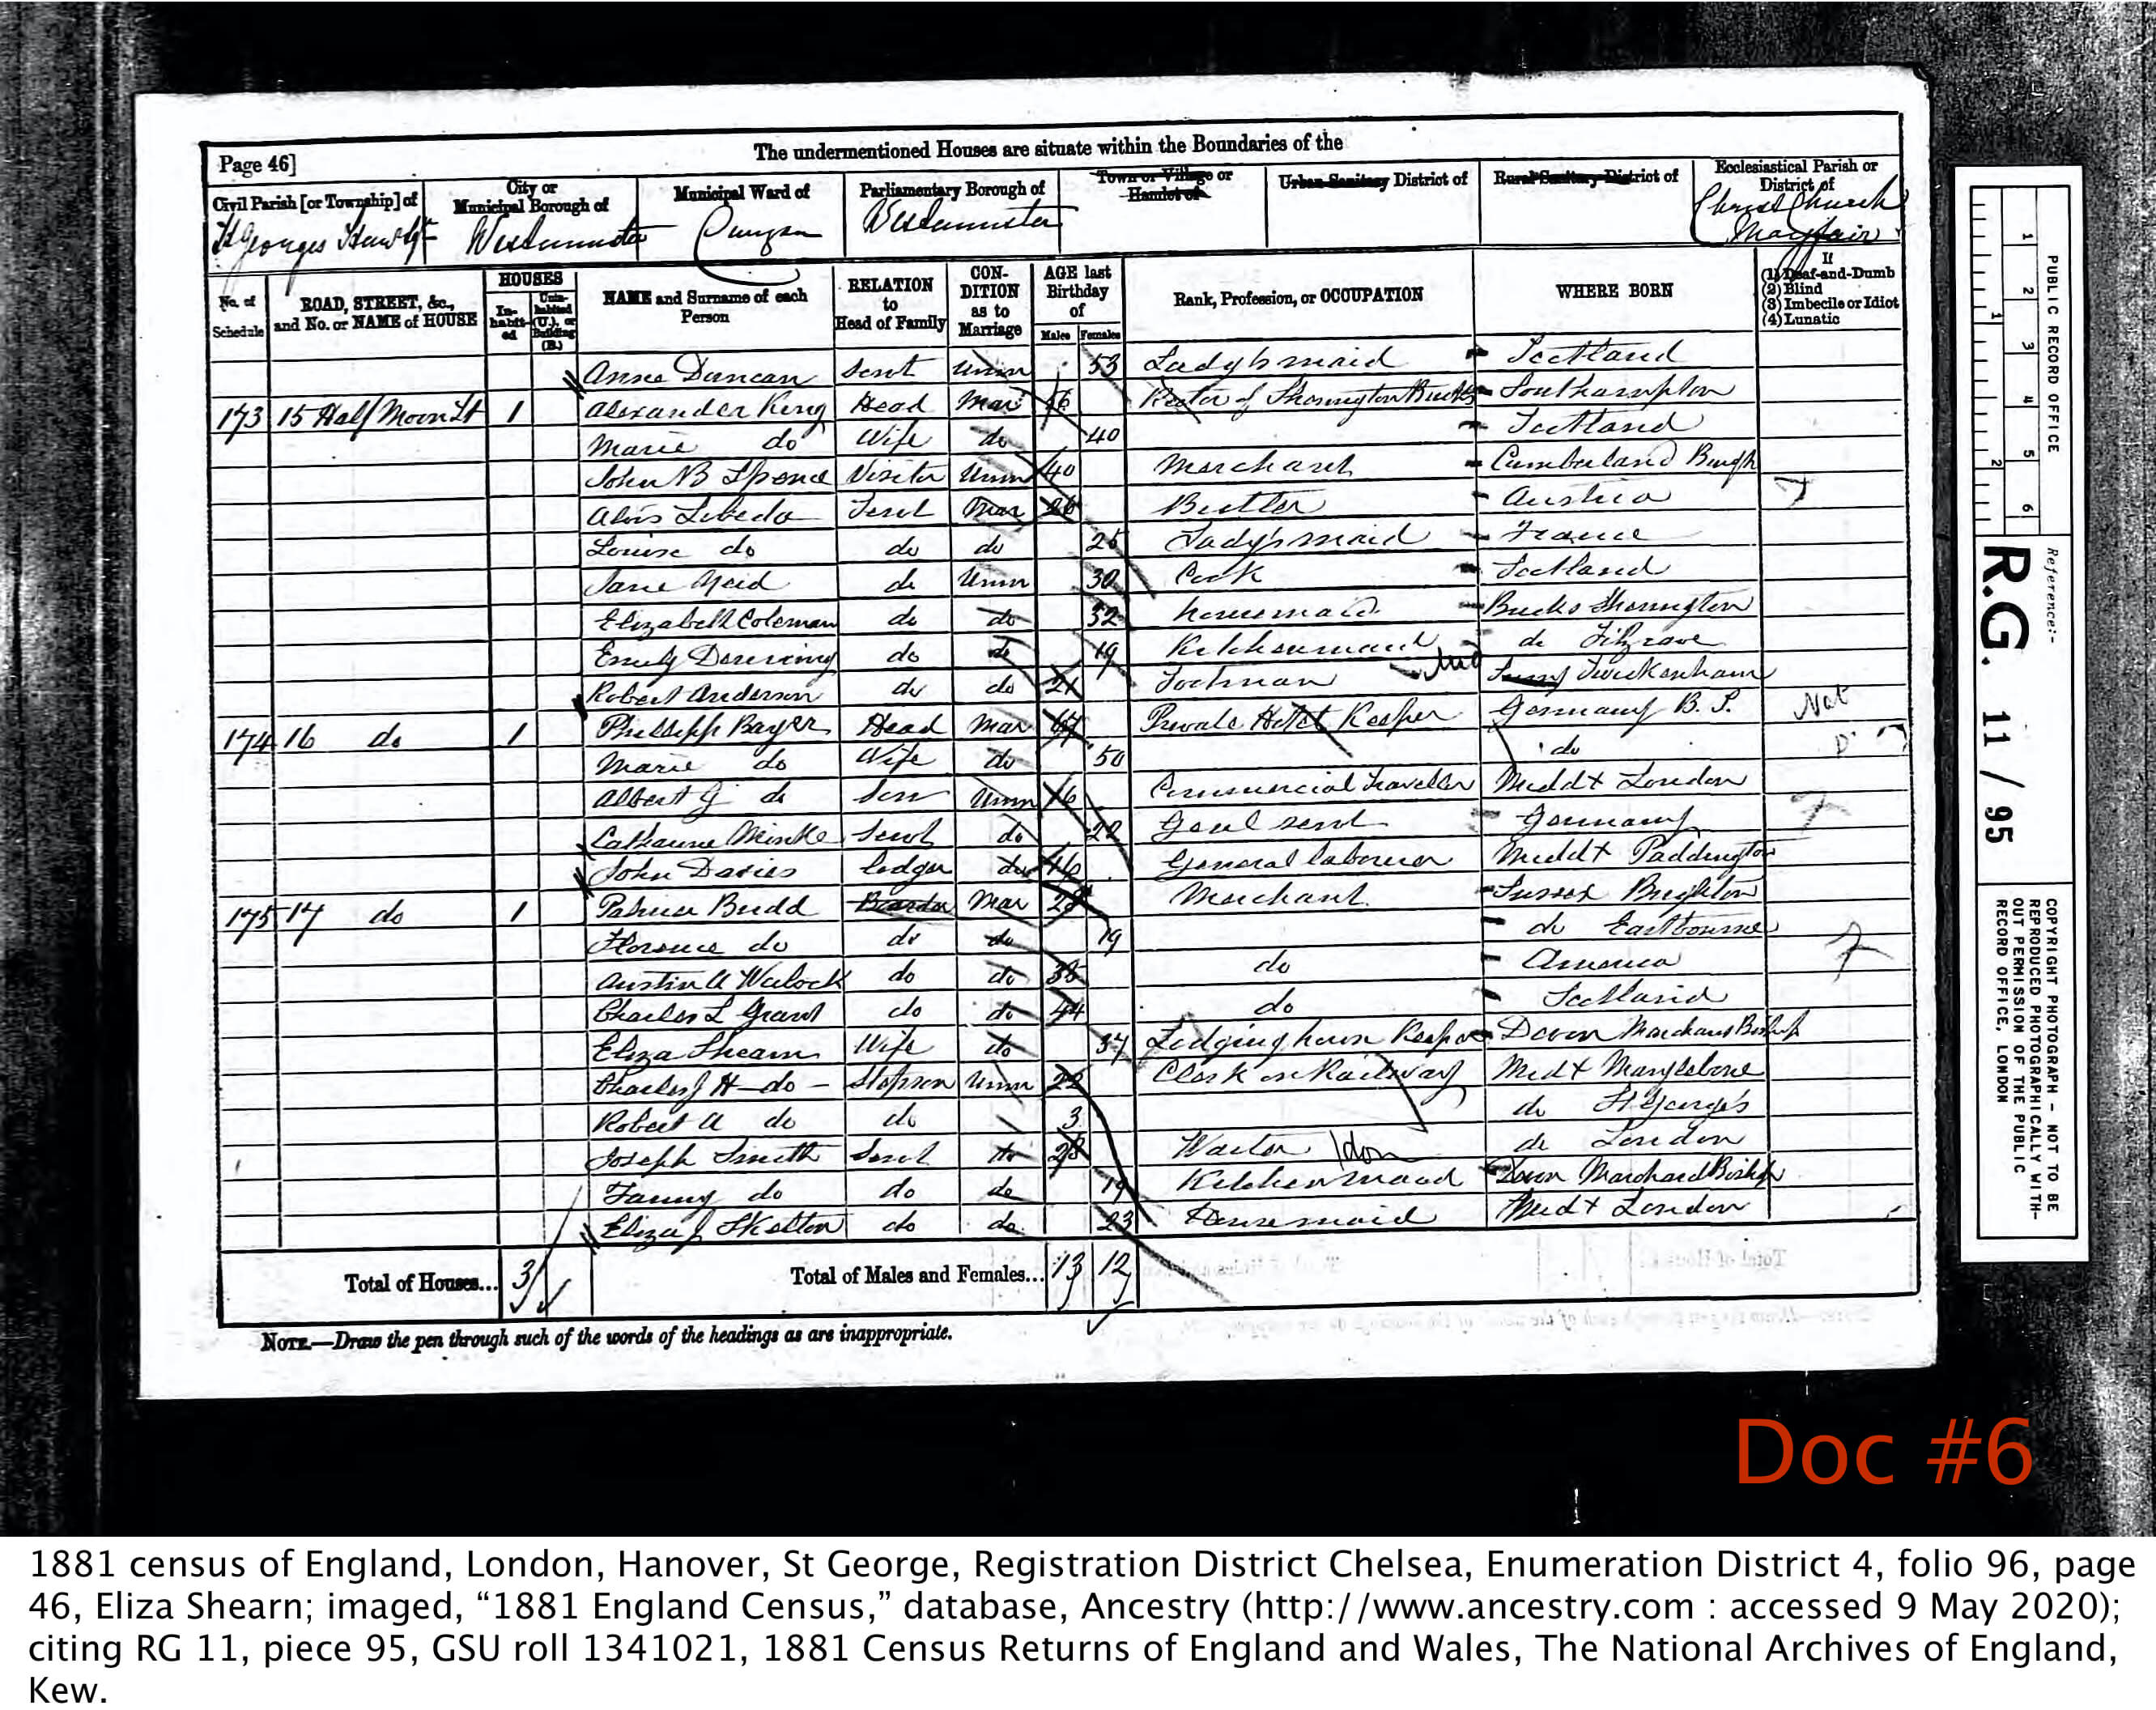 Page 46]
The undermentioned Houses are situate within the Boundaries of the
Civil Parish [or Township] of
City or Municipal Borough of
Municipal Ward of
Parliamentary Borough of
Town or Village or Hamlet of
Urban Sanitary District of
Rural Sanitary District of
Ecclesiastical Parish or District of
St Georges Westminster Curzon Westminster Christ Church Mayfair
No. of Schedule
ROAD, STREET, &c., and No. or NAME of HOUSE
HOUSES
Inhabited
Uninhabited (U.), or Building (B.)
NAME and Surname of each Person
RELATION to Head of Family
CONDITION as to Marriage
AGE last Birthday of
Males Females
Rank, Profession, or OCCUPATION
WHERE BORN
If
(1) Deaf-and-Dumb
(2) Blind
(3) Imbecile or Idiot
(4) Lunatic
Anne Duncan Servt Unm 53 Ladys maid Scotland
173 15 Half Moon St 1 Alexander King Head Mar 46 Rector of Sherrington Bucks Southampton
Marie do Wife do 40 Scotland
John B Spence Visitor Unm 40 Merchant Cumberland Burgh
Alois Lebeda Servt Mar 26 Butler Austria
Louise do do do 25 Ladys maid France
Jane do Unm 30 Cook Scotland
Elizabeth Coleman do do 32 housemaid Bucks Sherrington
Emily do do 19 Kitchenmaid do
Robert Anderson do do 21 Footman Twickenham
174 16 do 1 Phillipp Bayer Head Mar 47 Private Hotel Keeper Germany B. S. Not
Marie do Wife do 50 do
Albert J do Son Unm 16 Commercial Traveller Middx London
Catharine Minkle Servt do 22 Genl servt Germany
John Davies Lodger do 46 General labourer Middx Paddington
175 17 do 1 Budd Boarder Mar 28 Merchant Sussex Brighton
Florence do do do 19 do Eastbourne
Austin A do do 38 do America
Charles L Grant do do 44 do Scotland
Eliza Shearn Wife do 37 Lodging house Keeper Devon Marchard Bishop
Charles J H do Stepson Unm 22 Clerk on Railway Midx Marylebone
Robert A do do 3 do St George's
Joseph Smith Servt do 28 Waiter do London
Fanny do do do 19 Kitchenmaid Devon Marchard Bishop
Eliza J Skelton do do 23 Housemaid Midx London
Total of Houses... 3
Total of Males and Females... 13 12
NOTE.—Draw the pen through such of the words of the headings as are inappropriate.
PUBLIC RECORD OFFICE
1 2 3 4 5 6
1 2
Reference:-
R.G. 11 / 95
COPYRIGHT PHOTOGRAPH - NOT TO BE
REPRODUCED PHOTOGRAPHICALLY WITH-
OUT PERMISSION OF THE PUBLIC
RECORD OFFICE, LONDON
Doc #6
1881 census of England, London, Hanover, St George, Registration District Chelsea, Enumeration District 4, folio 96, page
46, Eliza Shearn; imaged, “1881 England Census,” database, Ancestry (http://www.ancestry.com : accessed 9 May 2020);
citing RG 11, piece 95, GSU roll 1341021, 1881 Census Returns of England and Wales, The National Archives of England,
Kew.